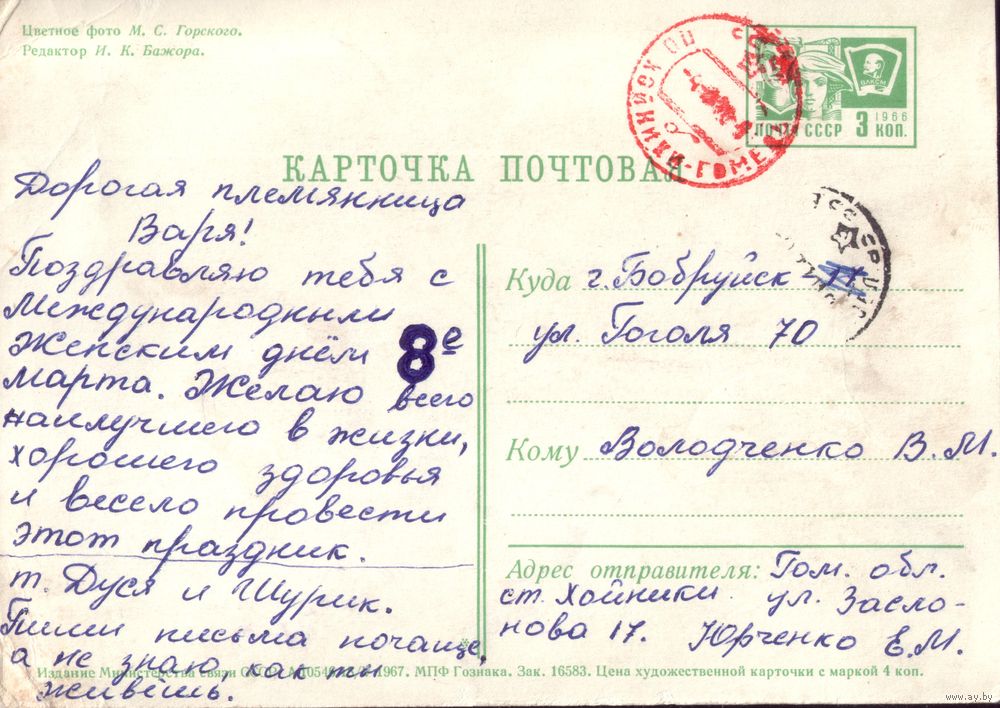 Цветное фото М. С. Горского.
Редактор И. К. Бажора.
ВЛКСМ
1966
ПОЧТА СССР 3 КОП.
КАРТОЧКА ПОЧТОВАЯ
Дорогая племянница
Варя!
Поздравляю тебя с
Международным
Женским днём 8е
марта. Желаю всего
наилучшего в жизни,
хорошего здоровья
и весело провести
этот праздник.
т. Дуся и Шурик.
Пиши письма почаще,
а не знаю как ты
живёшь.
Куда г. Бобруйск
ул. Гоголя 70
Кому Володченко В. М.
Адрес отправителя: Гом. обл.
ст. Хойники ул. Засло-
нова 17. Юрченко Е. М.
Издание Министерства связи СССР. 1967. МПФ Гознака. Зак. 16583. Цена художественной карточки с маркой 4 коп.
www.ay.by